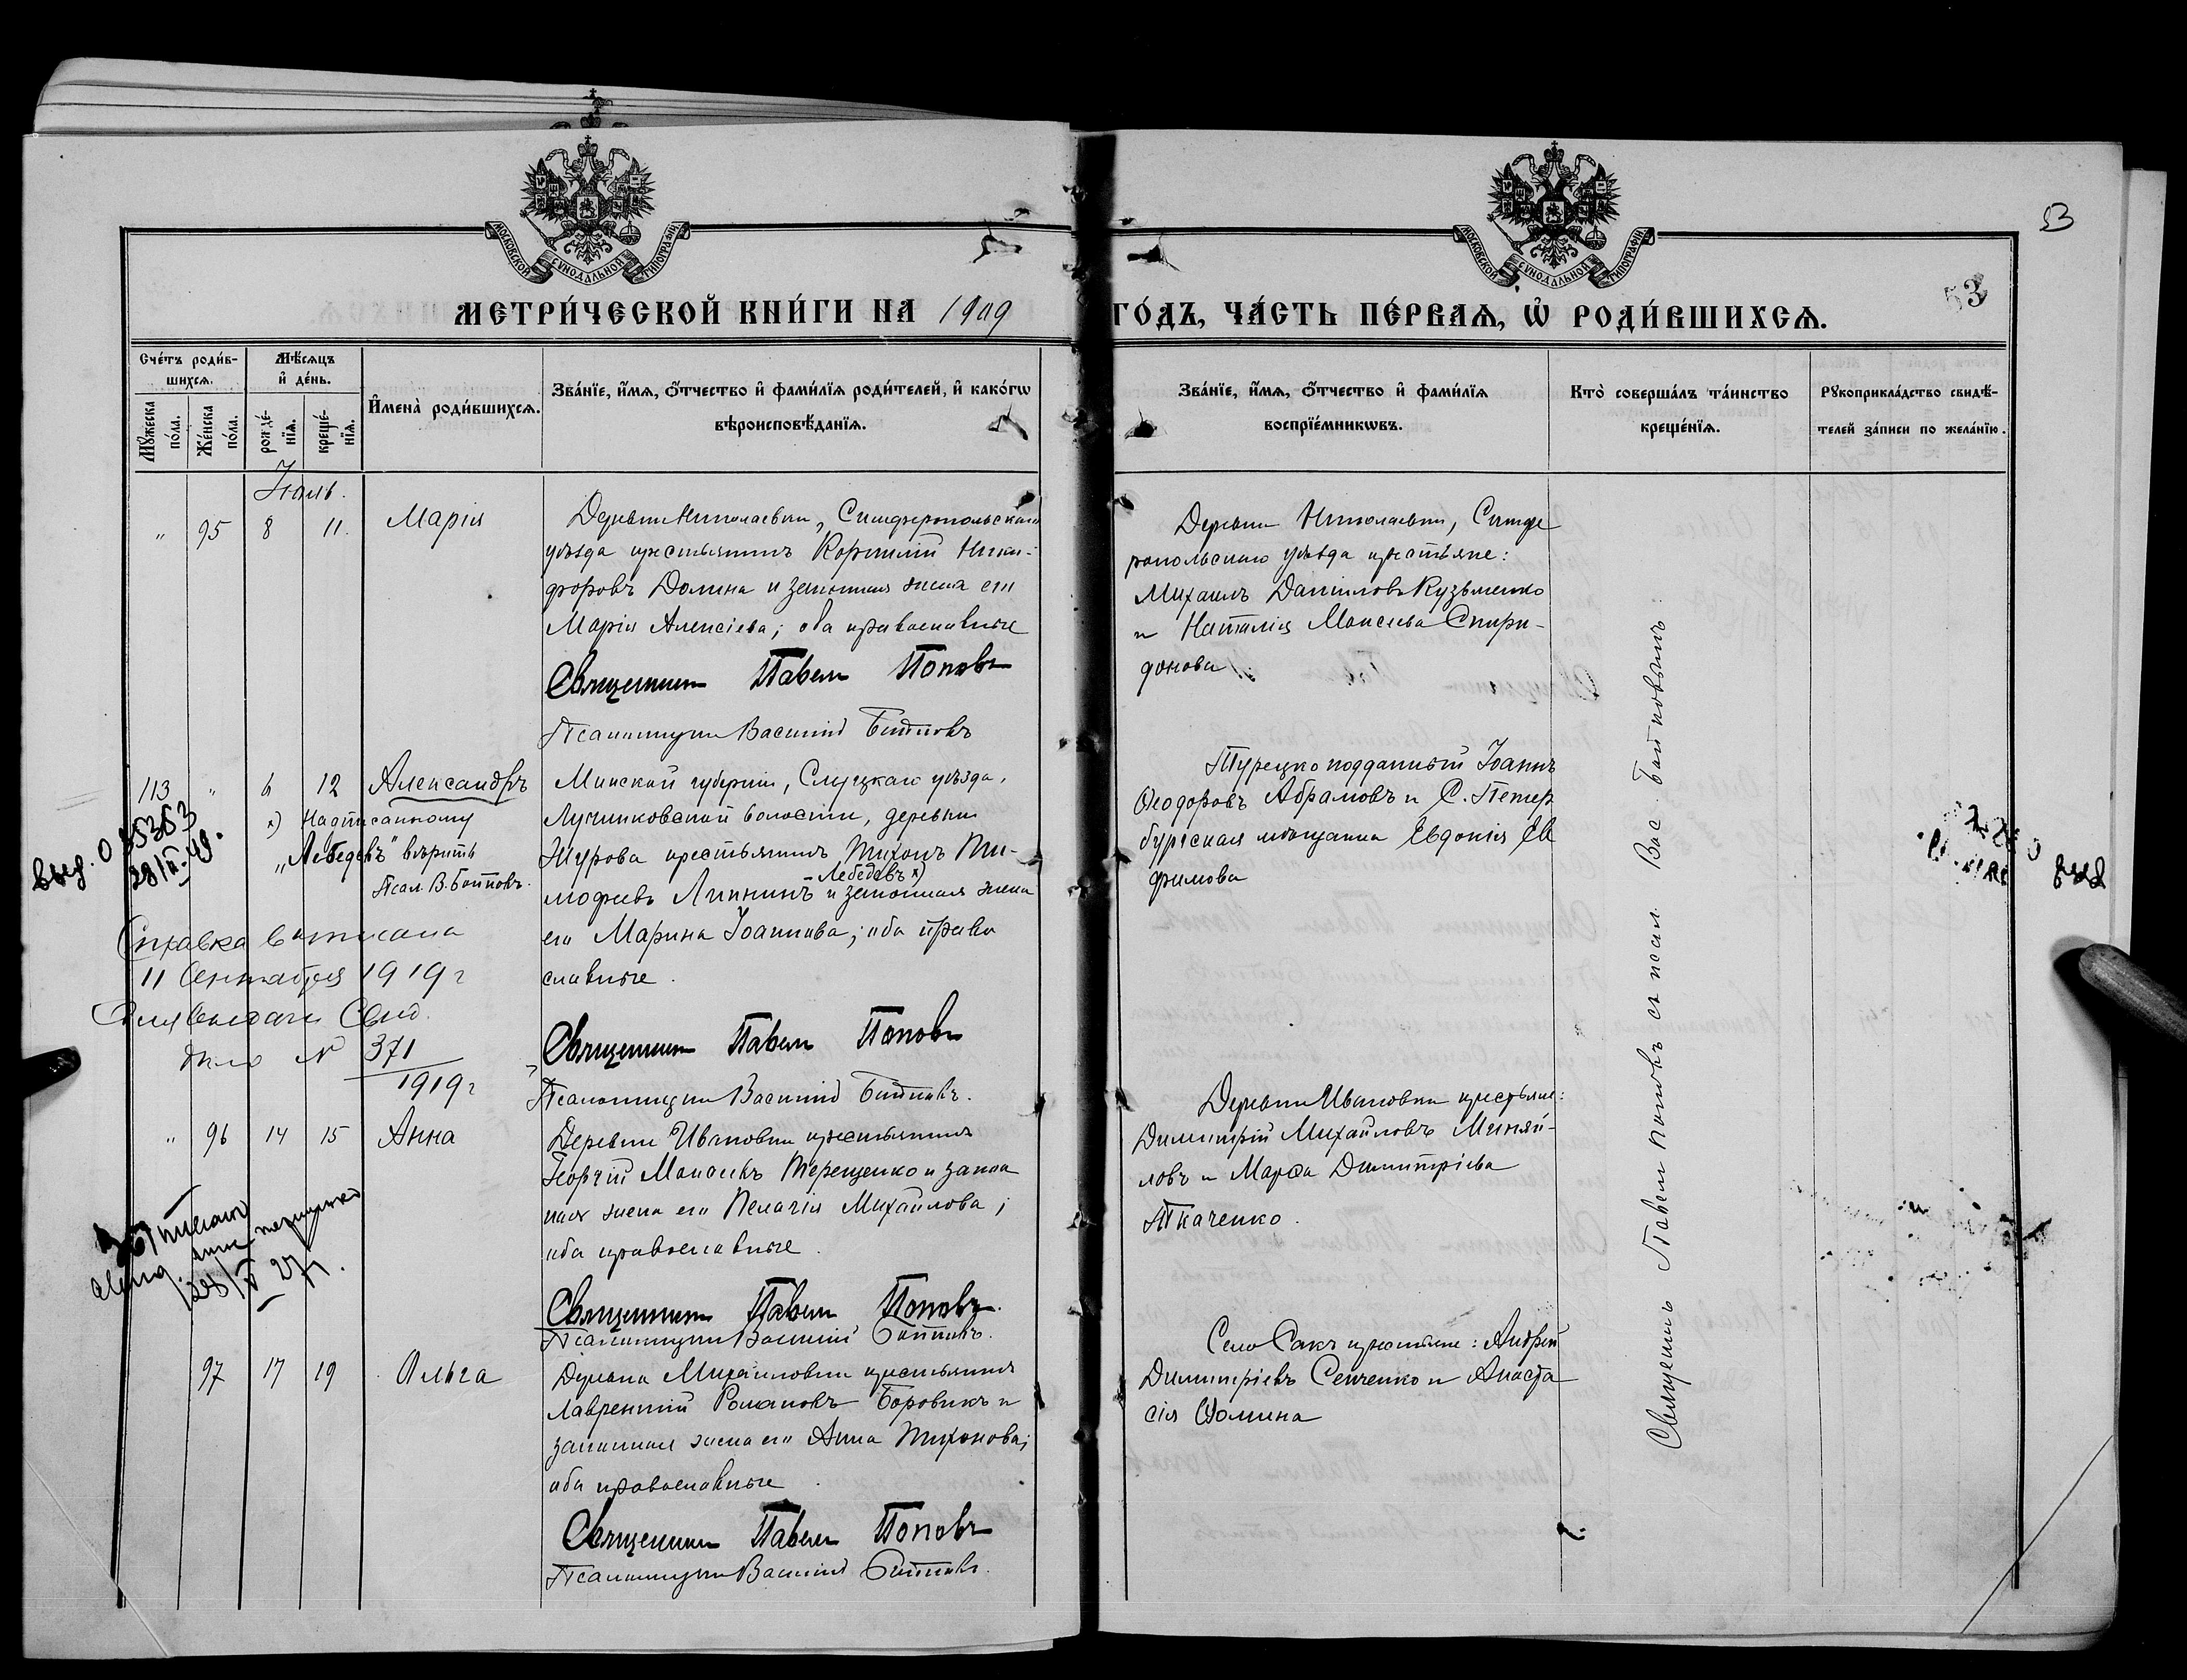 53
53
МОСКОВСКОЙ СѴНОДАЛЬНОЙ ТИПОГРАФІИ
МОСКОВСКОЙ СѴНОДАЛЬНОЙ ТИПОГРАФІИ
МЕТРИ́ЧЕСКОЙ КНИ́ГИ НА 1909 ГО́ДЪ, ЧА́СТЬ ПЕ́РВАѦ, Ѡ҆ РОДИ́ВШИХСѦ.
Сче́тъ роди́в-
шихсѧ.
Мꙋ́жеска по́ла.
Же́нска по́ла.
Мѣ́сѧцъ
и҆ де́нь.
рожде́-
нїѧ.
креще́-
нїѧ.
И҆мена̀ роди́вшихсѧ.
Зва́нїе, и҆́мѧ, ѻ҆́тчество и҆ фами́лїѧ роди́телей, и҆ како́гѡ
вѣроисповѣ́данїѧ.
Зва́нїе, и҆́мѧ, ѻ҆́тчество и҆ фами́лїѧ
воспрїе́мникѡвъ.
Кто̀ соверша́лъ та́инство
креще́нїѧ.
Рꙋкоприкла́дство свидѣ́-
телей за́писи по жела́нїю.
Іюль.
" 95 8 11. Марія
Деревни Николаевки, Симферопольскаго
уѣзда крестьянинъ Корнилій Ники-
форовъ Долина и законная жена его
Марія Алексіева; оба православные
Священникъ Павелъ Поповъ
Псаломщикъ Василій Батковъ
Деревни Николаевки, Симфе
ропольскаго уѣзда крестьяне:
Михаилъ Даниловъ Кузьменко
и Наталія Моисеева Спири-
донова
113 " 6 12 Александръ
х) Надписанному
"Лебедевъ" вѣрить
Псал. В. Батковъ.
Минской губерніи, Слуцкаго уѣзда,
волости, деревни
крестьянинъ Тихонъ Ти-
мофеевъ Лебедевъ х) и законная жена
его Марина Іоаннова; оба право
славные.
Священникъ Павелъ Поповъ
Псаломщикъ Василій Батковъ.
Турецко подданный Іоаннъ
Ѳеодоровъ Абрамовъ и С. Петер
бургская мѣщанка Евдокія Ев
фимова
выд. О
Справка выписана
11 Сентября 1919 г
Для выдачи Свид.
дѣло № 371
1919 г
" 96 14 15 Анна
Деревни Ивановки крестьянинъ
Георгій Моисеевъ Терещенко и закон
ная жена его Пелагія Михайлова;
оба православные.
Священникъ Павелъ Поповъ.
Псаломщикъ Василій Батковъ.
Деревни Ивановки крестьяне:
Димитрій Михайловъ Миняй-
ловъ и Марѳа Димитріева
Ткаченко.
97 17 19 Ольга
Деревни Михайловки крестьянинъ
Лаврентій Романовъ Боровикъ и
законная жена его Анна Тихонова;
оба православные.
Священникъ Павелъ Поповъ
Псаломщикъ Василій Батковъ.
Село Сакъ крестьяне: Андрей
Димитріевъ Сенченко и Анаста
сія Ѳомина
Священникъ Павелъ Поповъ съ псал. Вас. Батковымъ.